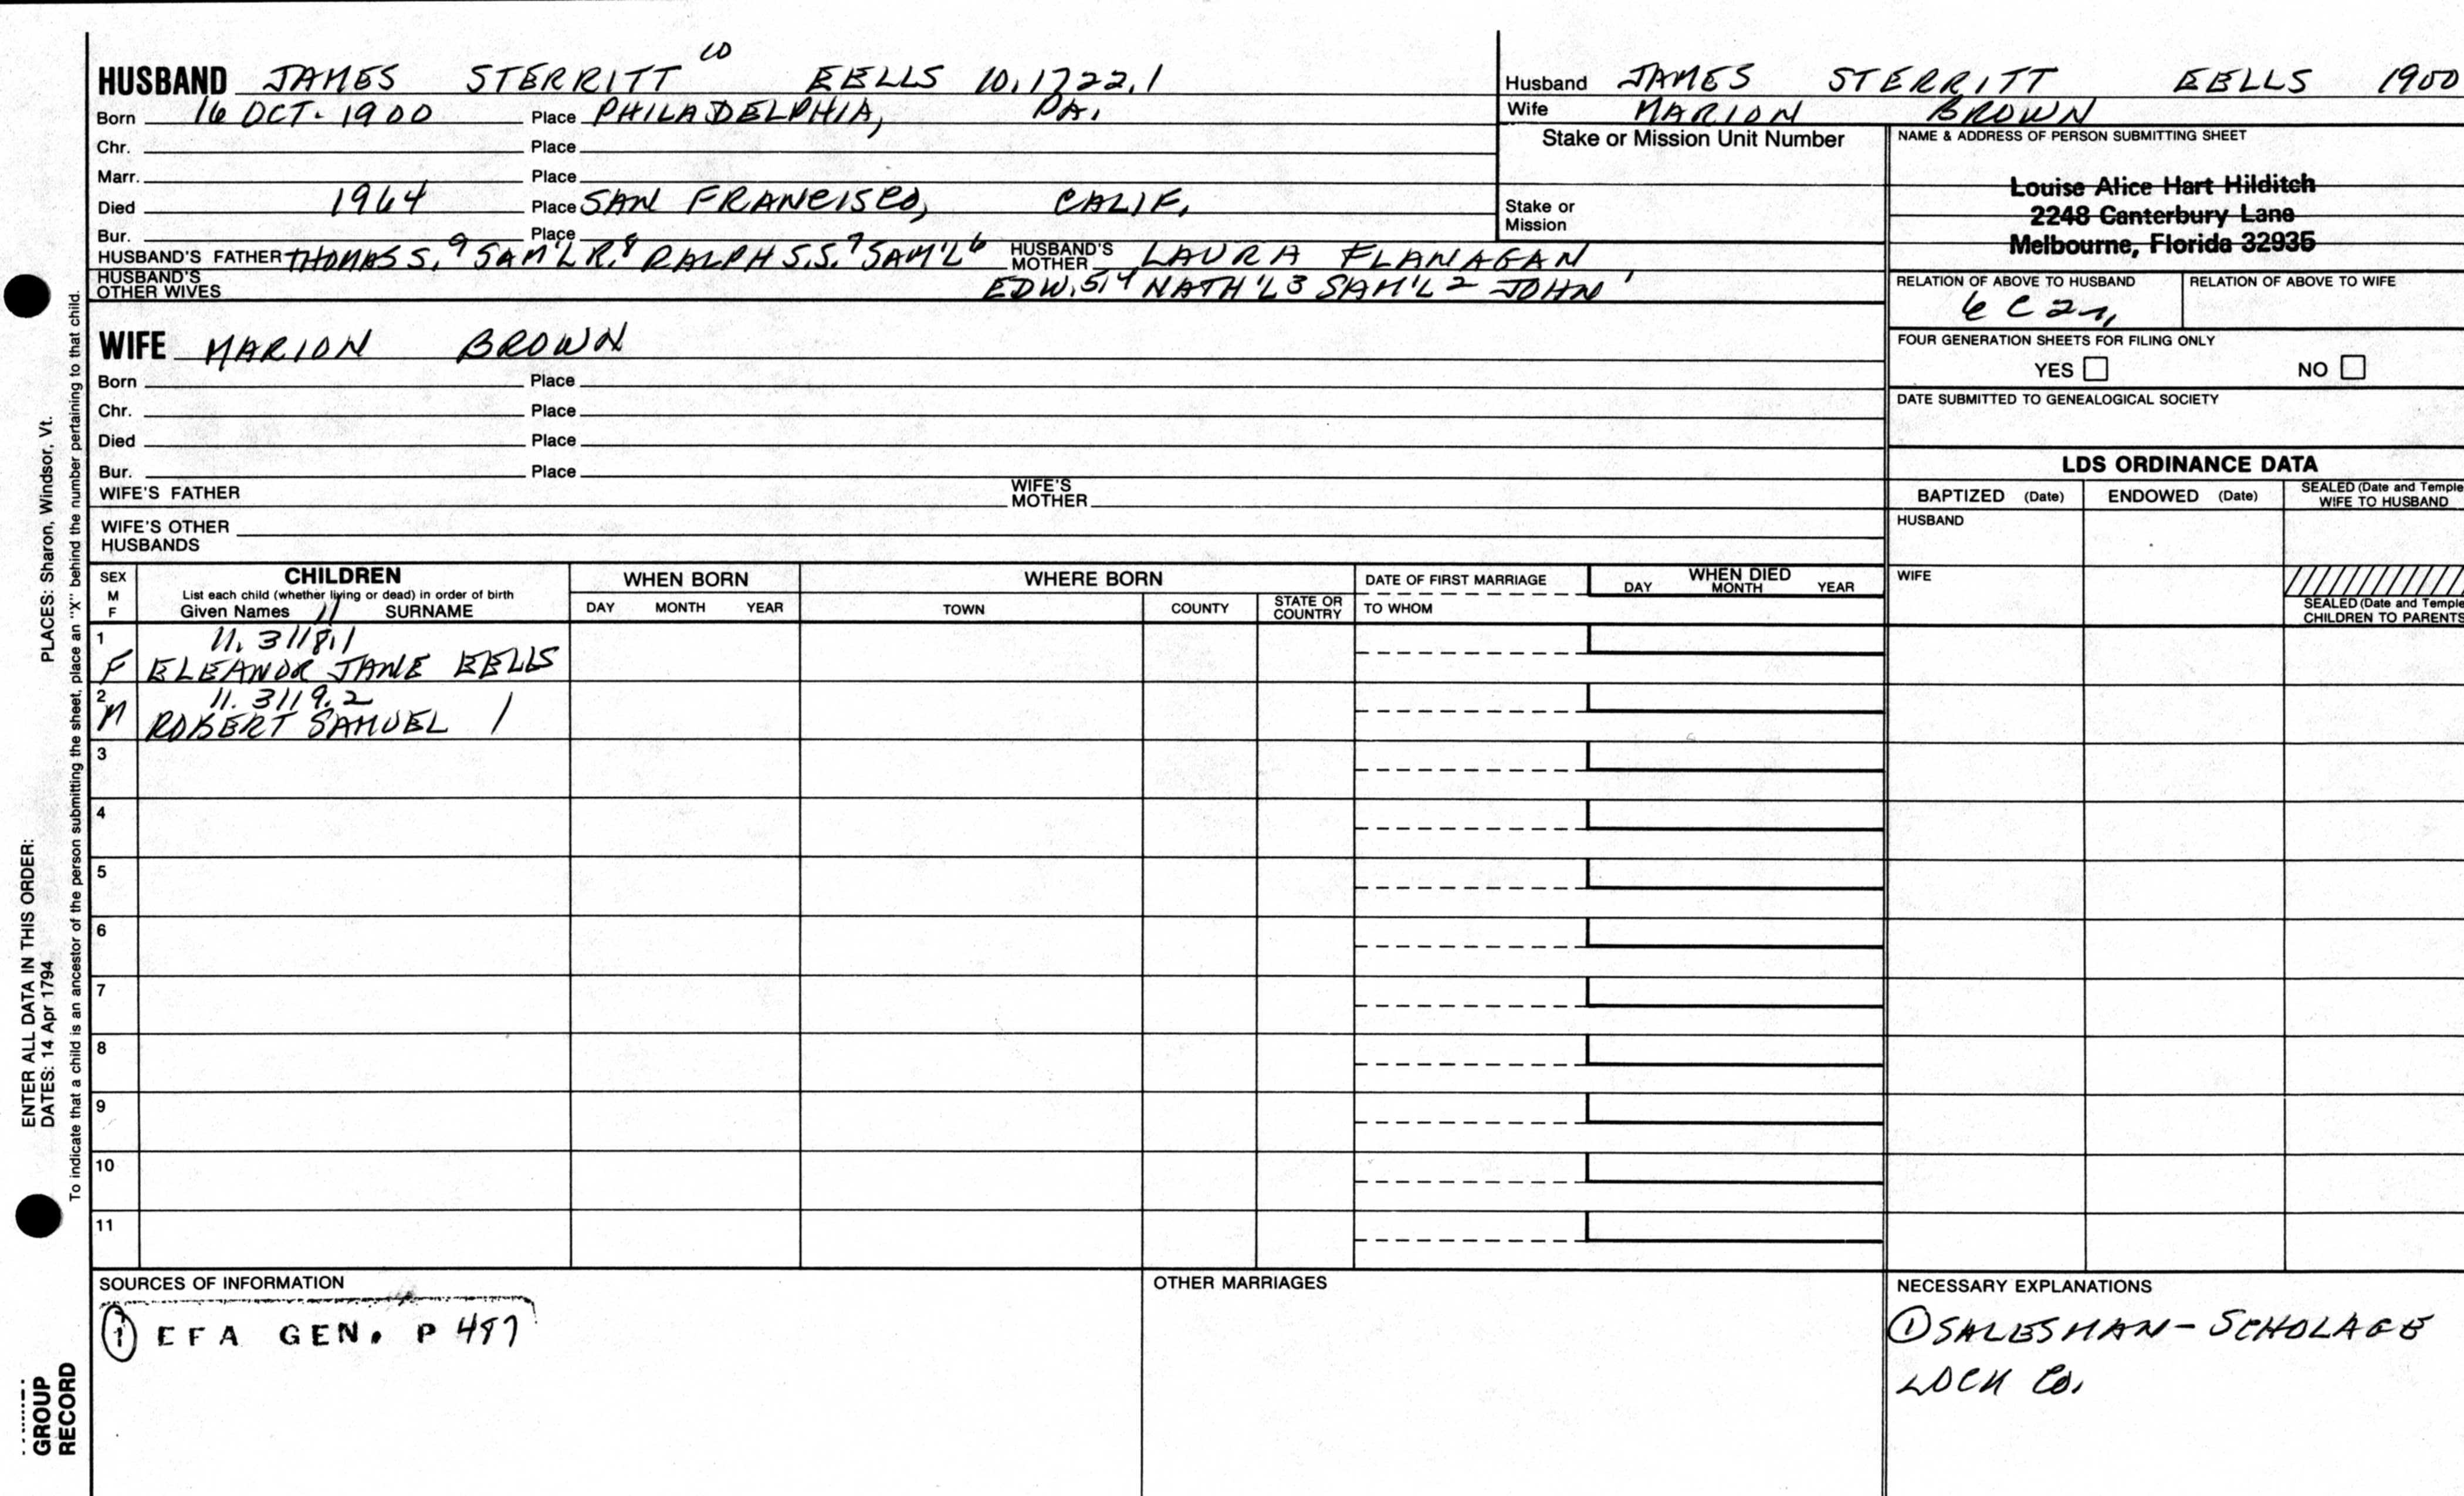 HUSBAND JAMES STERRITT 10 EELLS 10.1722.1
Born 16 OCT. 1900 Place PHILADELPHIA, PA.
Chr. Place
Marr. Place
Died 1964 Place SAN FRANCISCO, CALIF.
Bur. Place
HUSBAND'S FATHER THOMAS S.9 SAM'L R.8 RALPH S.S.7 SAM'L6 HUSBAND'S MOTHER LAURA FLANAGAN
HUSBAND'S OTHER WIVES EDW.5,4 NATH'L3 SAM'L2 JOHN1
Husband JAMES STERRITT EELLS 1900
Wife MARION BROWN
Stake or Mission Unit Number
Stake or
Mission
NAME & ADDRESS OF PERSON SUBMITTING SHEET
Louise Alice Hart Hilditch
2248 Canterbury Lane
Melbourne, Florida 32935
RELATION OF ABOVE TO HUSBAND RELATION OF ABOVE TO WIFE
6 C 2r,
FOUR GENERATION SHEETS FOR FILING ONLY
YES NO
DATE SUBMITTED TO GENEALOGICAL SOCIETY
WIFE MARION BROWN
Born Place
Chr. Place
Died Place
Bur. Place
WIFE'S FATHER WIFE'S MOTHER
WIFE'S OTHER
HUSBANDS
LDS ORDINANCE DATA
BAPTIZED (Date) ENDOWED (Date) SEALED (Date and Temple
WIFE TO HUSBAND
HUSBAND
WIFE
SEALED (Date and Temple
CHILDREN TO PARENTS
SEX
M
F
CHILDREN
List each child (whether living or dead) in order of birth
Given Names 11 SURNAME
WHEN BORN
DAY MONTH YEAR
WHERE BORN
TOWN COUNTY STATE OR COUNTRY
DATE OF FIRST MARRIAGE
TO WHOM
WHEN DIED
DAY MONTH YEAR
1 11.3118.1
F ELEANOR JANE EELLS
2 11.3119.2
M ROBERT SAMUEL /
3
4
5
6
7
8
9
10
11
SOURCES OF INFORMATION
① EFA GEN. P 497
OTHER MARRIAGES
NECESSARY EXPLANATIONS
① SALESMAN - SCHOLAGE
LOCK Co.
ENTER ALL DATA IN THIS ORDER:
DATES: 14 Apr 1794 PLACES: Sharon, Windsor, Vt.
To indicate that a child is an ancestor of the person submitting the sheet, place an "X" behind the number pertaining to that child.
GROUP
RECORD